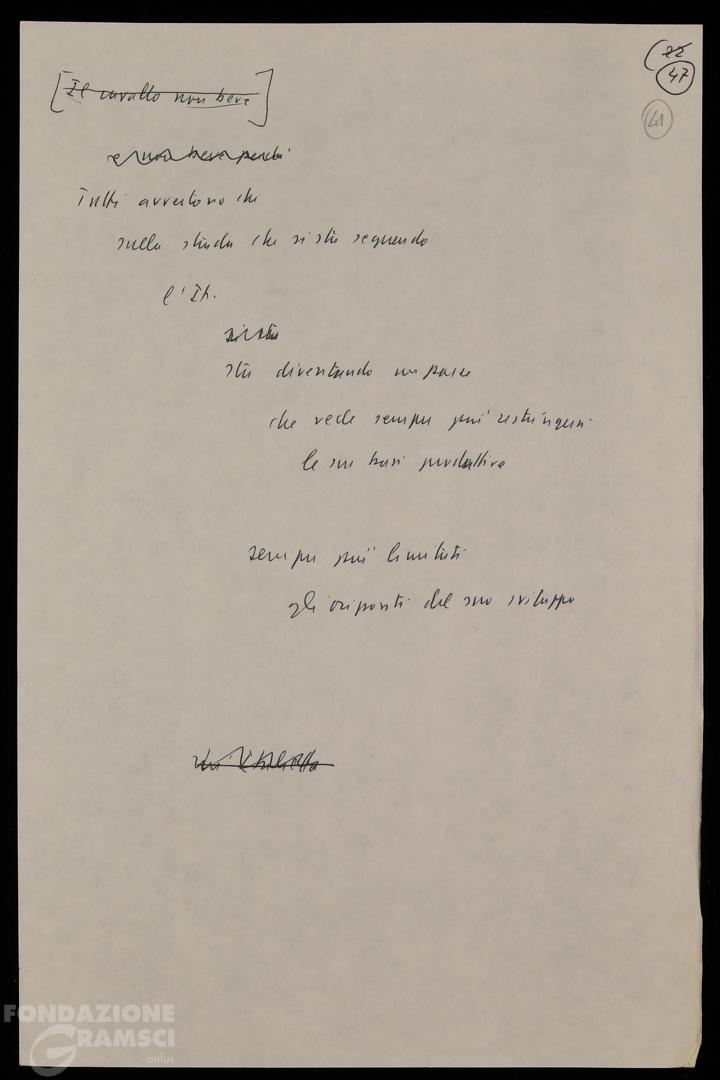 (22
47
41
[Il cavallo non beve]
e non beve perché
Tutti avvertono che
sulla strada che si sta seguendo
l'It.
si sta
sta diventando un paese
che vede sempre più restringersi
le sue basi produttive
sempre più limitati
gli orizzonti del suo sviluppo
FONDAZIONE
GRAMSCI
onlus